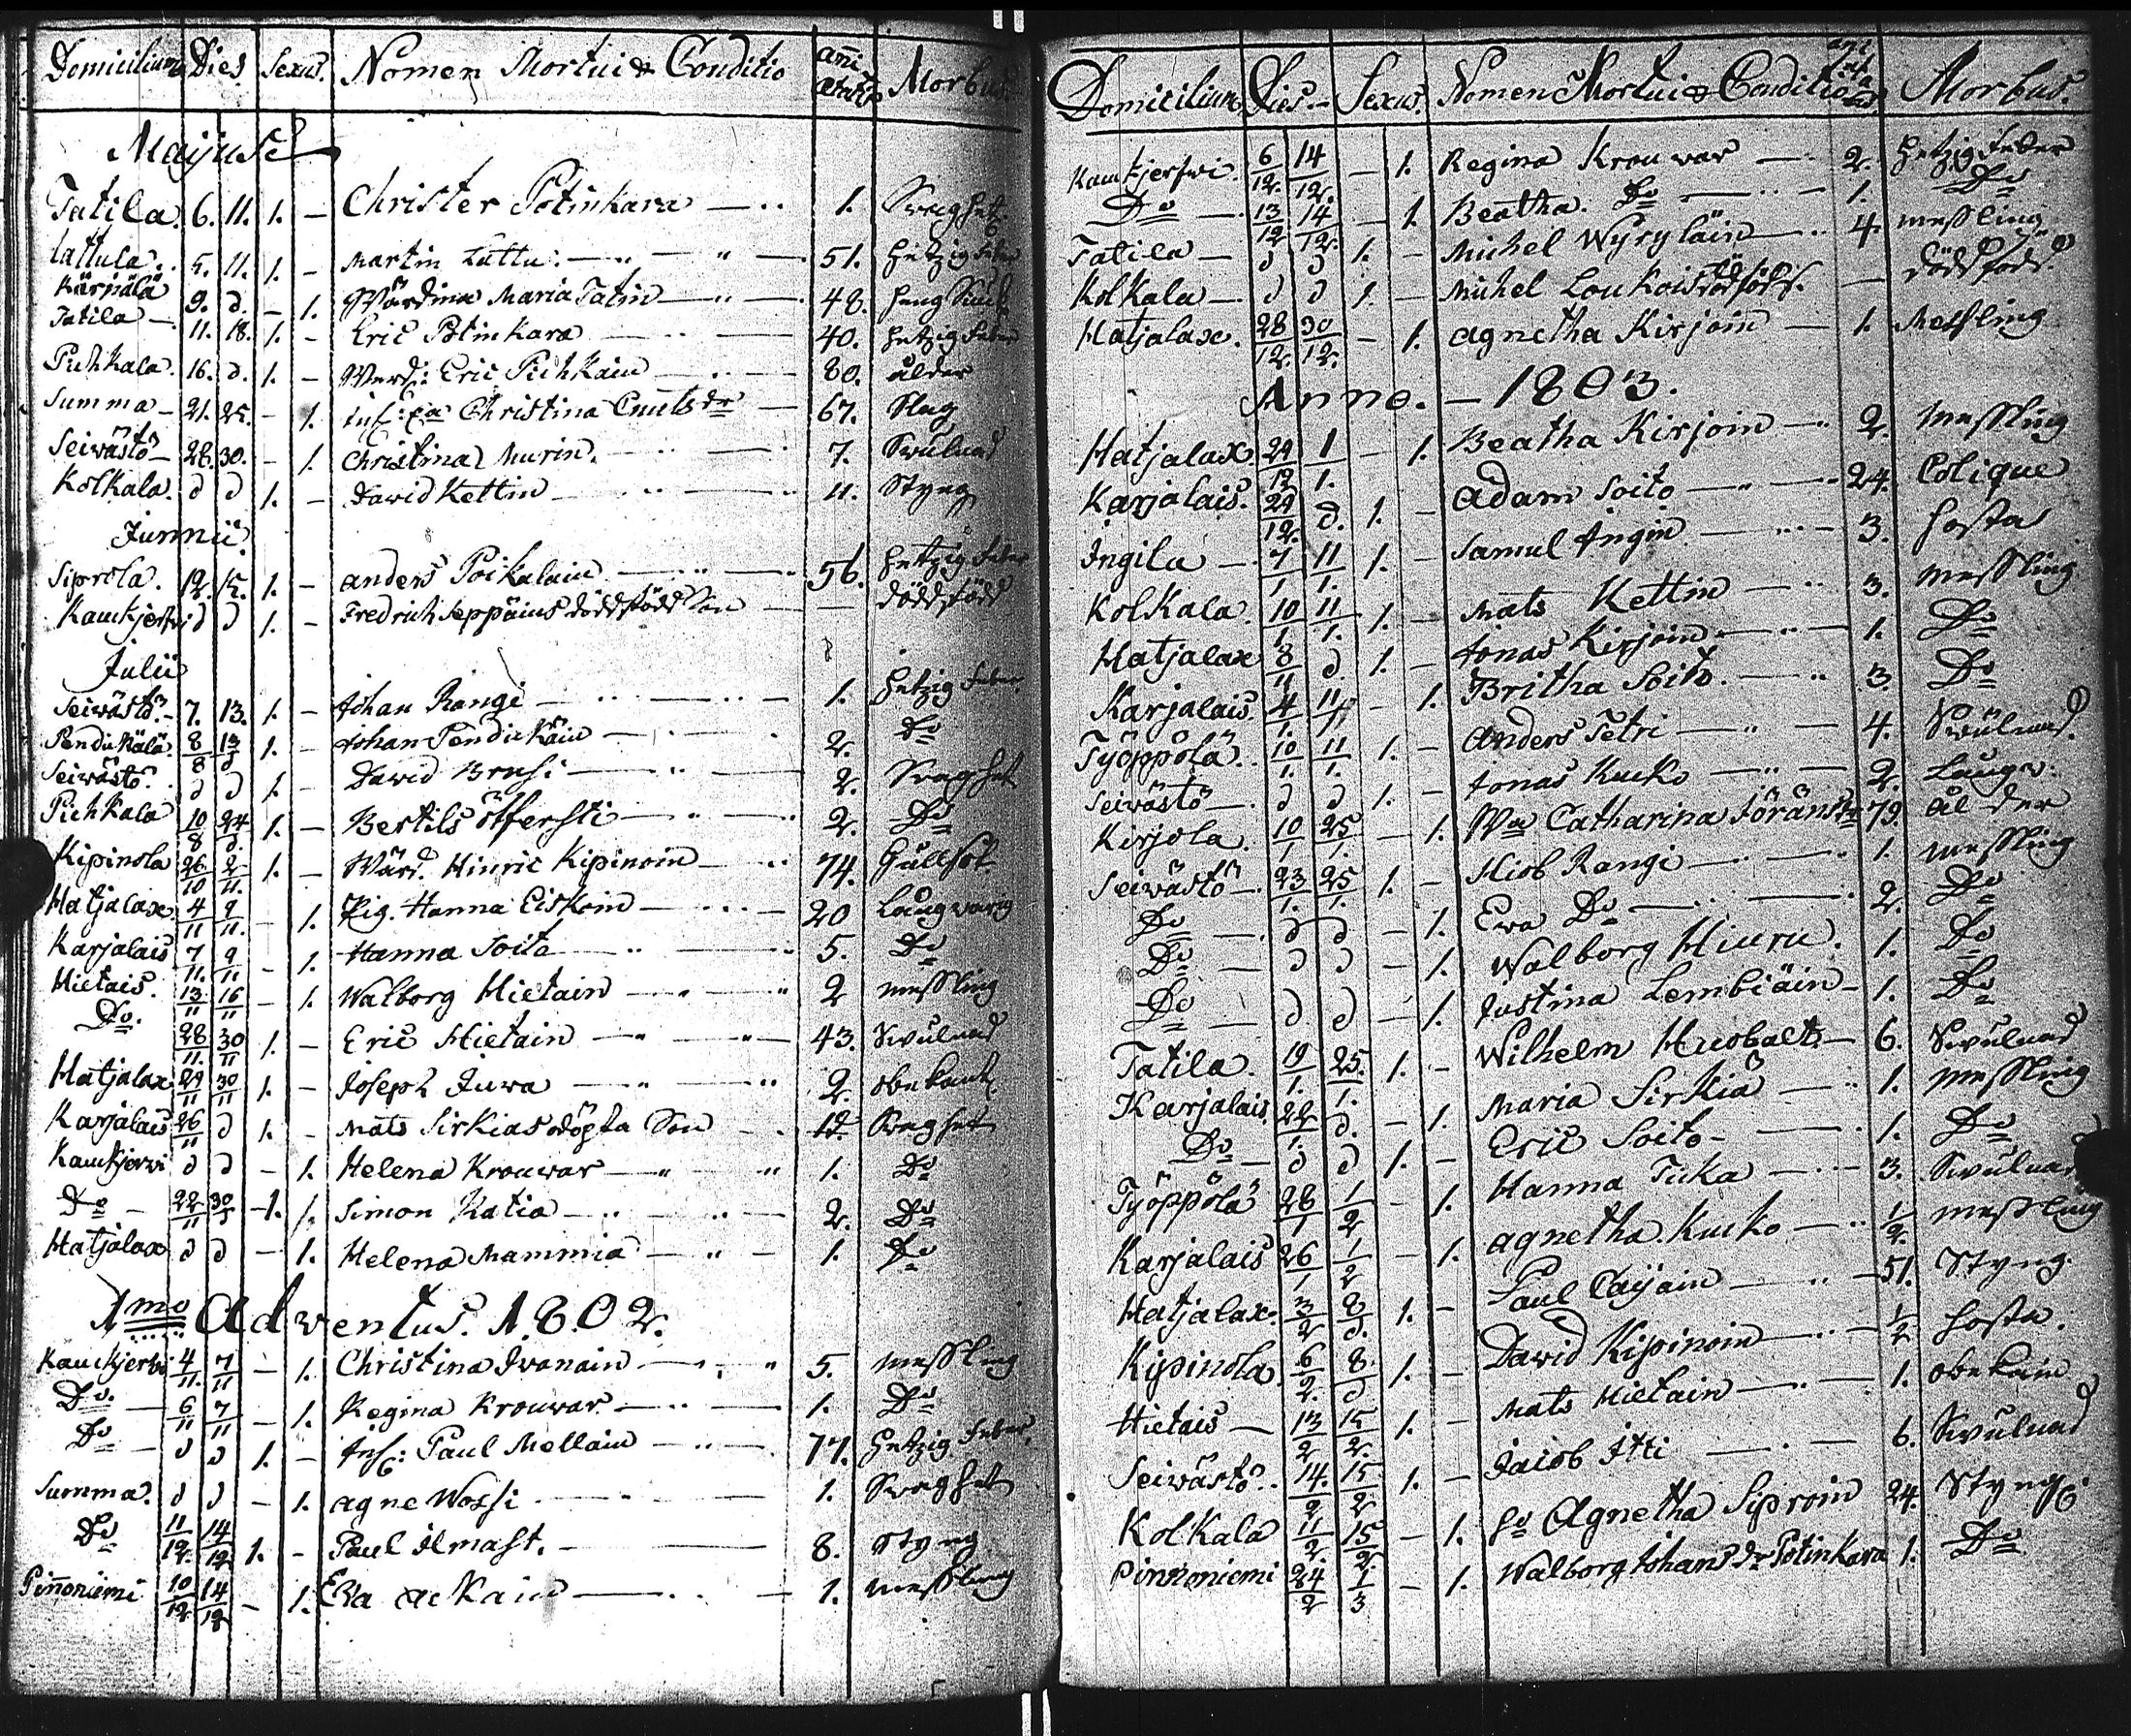 Domicilium Dies Sexus. Nomen Mortui & Conditio anni ætatis Morbus.
Maijus
Tatila. 6. 11. 1. – Christer Potinkara 1. Svaghet
Lattula. 5. 11. 1. – Martin Lattu 51. Hetzig feber
Kärpälä 9. d. – 1. Wärdina Maria Tatin 48. Heng Siuk
Tatila – 11. 18. 1. – Eric Potinkara 40. Hetzig feber
Pichkala. 16. d. 1. – Werd: Eric Pichkain 80. ålder
Summa – 21. 25. – 1. Christina Cnuts dr 67. Slag
Seivästö – 28. 30. – 1. Christina Murin. 7. Svulnad
Kolkala. d d 1. – David Kettin 11. Styng
Junnii.
Siprola. 12. 15. 1. – anders Poikalain 56. Hetzig feber
Kaukjerfvi d d 1. – Fredrich Seppäins dödfödd Son — dödfödd
Julii
Seivästö. – 7. 13. 1. – Johan Rangi 1. Hetzig feber
Pendikälä 8/8 13/d 1. – Johan Pendikäin 2. Do
Seivästö. d d 1. – David Brusi 2. Svaghet
Pichkala 10/8 24/d. 1. – Bertils 2. Do
Kipinola 26/10 2/11. 1. – Wärd. Hinric Kipinoin 74. Gullsot
Hatjalax 4/11 9/11. – 1. Pig. Hanna Eiskoin 20 Langvarig
Karjalais 7/11. 9/11 – 1. Hanna Soito 5. Do
Hietais. 13/11 16/11 – 1. Walborg Hietain 2 messling
Do. 28/11. 30/11 1. – Eric Hietain 43. Svulnad
Hatjalax 29/11 30/11 1. – Joseph Juwa 2. obekant
Karjalais 26/11 d 1. – Mats Sirkias odöpta Son 1d. Svaghet
Kaukjervi d d – 1. Helena Krouvar 1. Do
Do – 22/11 30/d –1. 1. Simon Katia 2. Do
Hatjalax d d – 1. Helena Mammia 1. Do
1mo Adventus. 1802.
Kaukjervi 4/11. 7/11 – 1. Christina Ivanain 5. messling
Do. – 6/11 7/11 – 1. Regina Krouvar 1. Do
Do – d d 1. – Inh: Paul Mellain 77. Hetzig feber.
Summa. d d – 1. agne Wossi 1. Svaghet
Do 11/12. 14/12 1. – Paul Ilmast. 8. Styng
Pinnoniemi 10/12 14/12 – 1. Eva ackain 1. messling
Domicilium Dies – Sexus. Nomen Mortui & Conditio Morbus.
Kaukjerfvi. 6/12. 14/12. – 1. Regina Krouvar 2. Hetzig feber
Do – 13/12 14/12. – 1. Beatha. Do 1. Do
Tatila – d d 1. – Michel Wyryläin 4. messling
Kolkala – d d 1. – Michel Loukois dödföds. — död föds.
Hatjalax. 28/12. 30/12. – 1. agnetha Kirjoin 1. Messling
Anno. – 1803.
Hatjalax 29/12 1/1. – 1. Beatha Kirjoin 2. messling
Karjalais. 29/12. d. 1. – adam Soito 24. Colique
Ingila – 7/1 11/1. 1. – Samul Ingin 3. Hosta
Kolkala. 10/1. 11/1. 1. – Mats Kettin 3. messling
Hatjalax 8/11 d 1. – Jonas Kirjoin 1. Do
Karjalais. 4/1. 11/1 – 1. Britha Soito. 3. Do
Työppölä. 10/1. 11/1. 1. – Anders Tetri 4. Svulnad.
Seivästö – d d 1. – Jonas Kucko 2. Langv:
Kirjola. 10/1 25/1. – 1. Wa Catharina Jöränsdr 79. ålder
Seivästö – 23/1. 25/1. 1. – Hiob Rangi 1. messling
Do – d d – 1. Ewa Do 2. Do
Do – d d – 1. Walborg Hiuru. 1. Do
Do – d d – 1. Justina Lembiäin 1. Do
Tatila. 19/1. 25./1. 1. – Wilhelm Huobalt 6. Svulnad
Karjalais. 22/1. d. – 1. Maria Sirkiä 1. messling
Do – d d 1. – Eric Soito – 1. Do
Työppölä 28/1 1/2 – 1. Hanna Tuka 3. Svulnad
Karjalais 26/1 1/2 – 1. agnetha Kucko 1/2. messling
Hatjalax. 3/2 8/d. 1. – Paul Caijain 51. Styng.
Kipinola 6/2. 8./d 1. – David Kipinoin 1/2 Hosta.
Hietais – 13/2 15/2. 1. – Mats Hietain 1. obekain
Seivästö. 14./2 15/2 1. – Jacob Itti 6. Svulnad
Kolkala 11/2. 15/2. – 1. Agnetha Siproin 24. Styng
Pinnoniemi 24/2 1/3 – 1. Walborg Johans dr Potinkara 1. Do